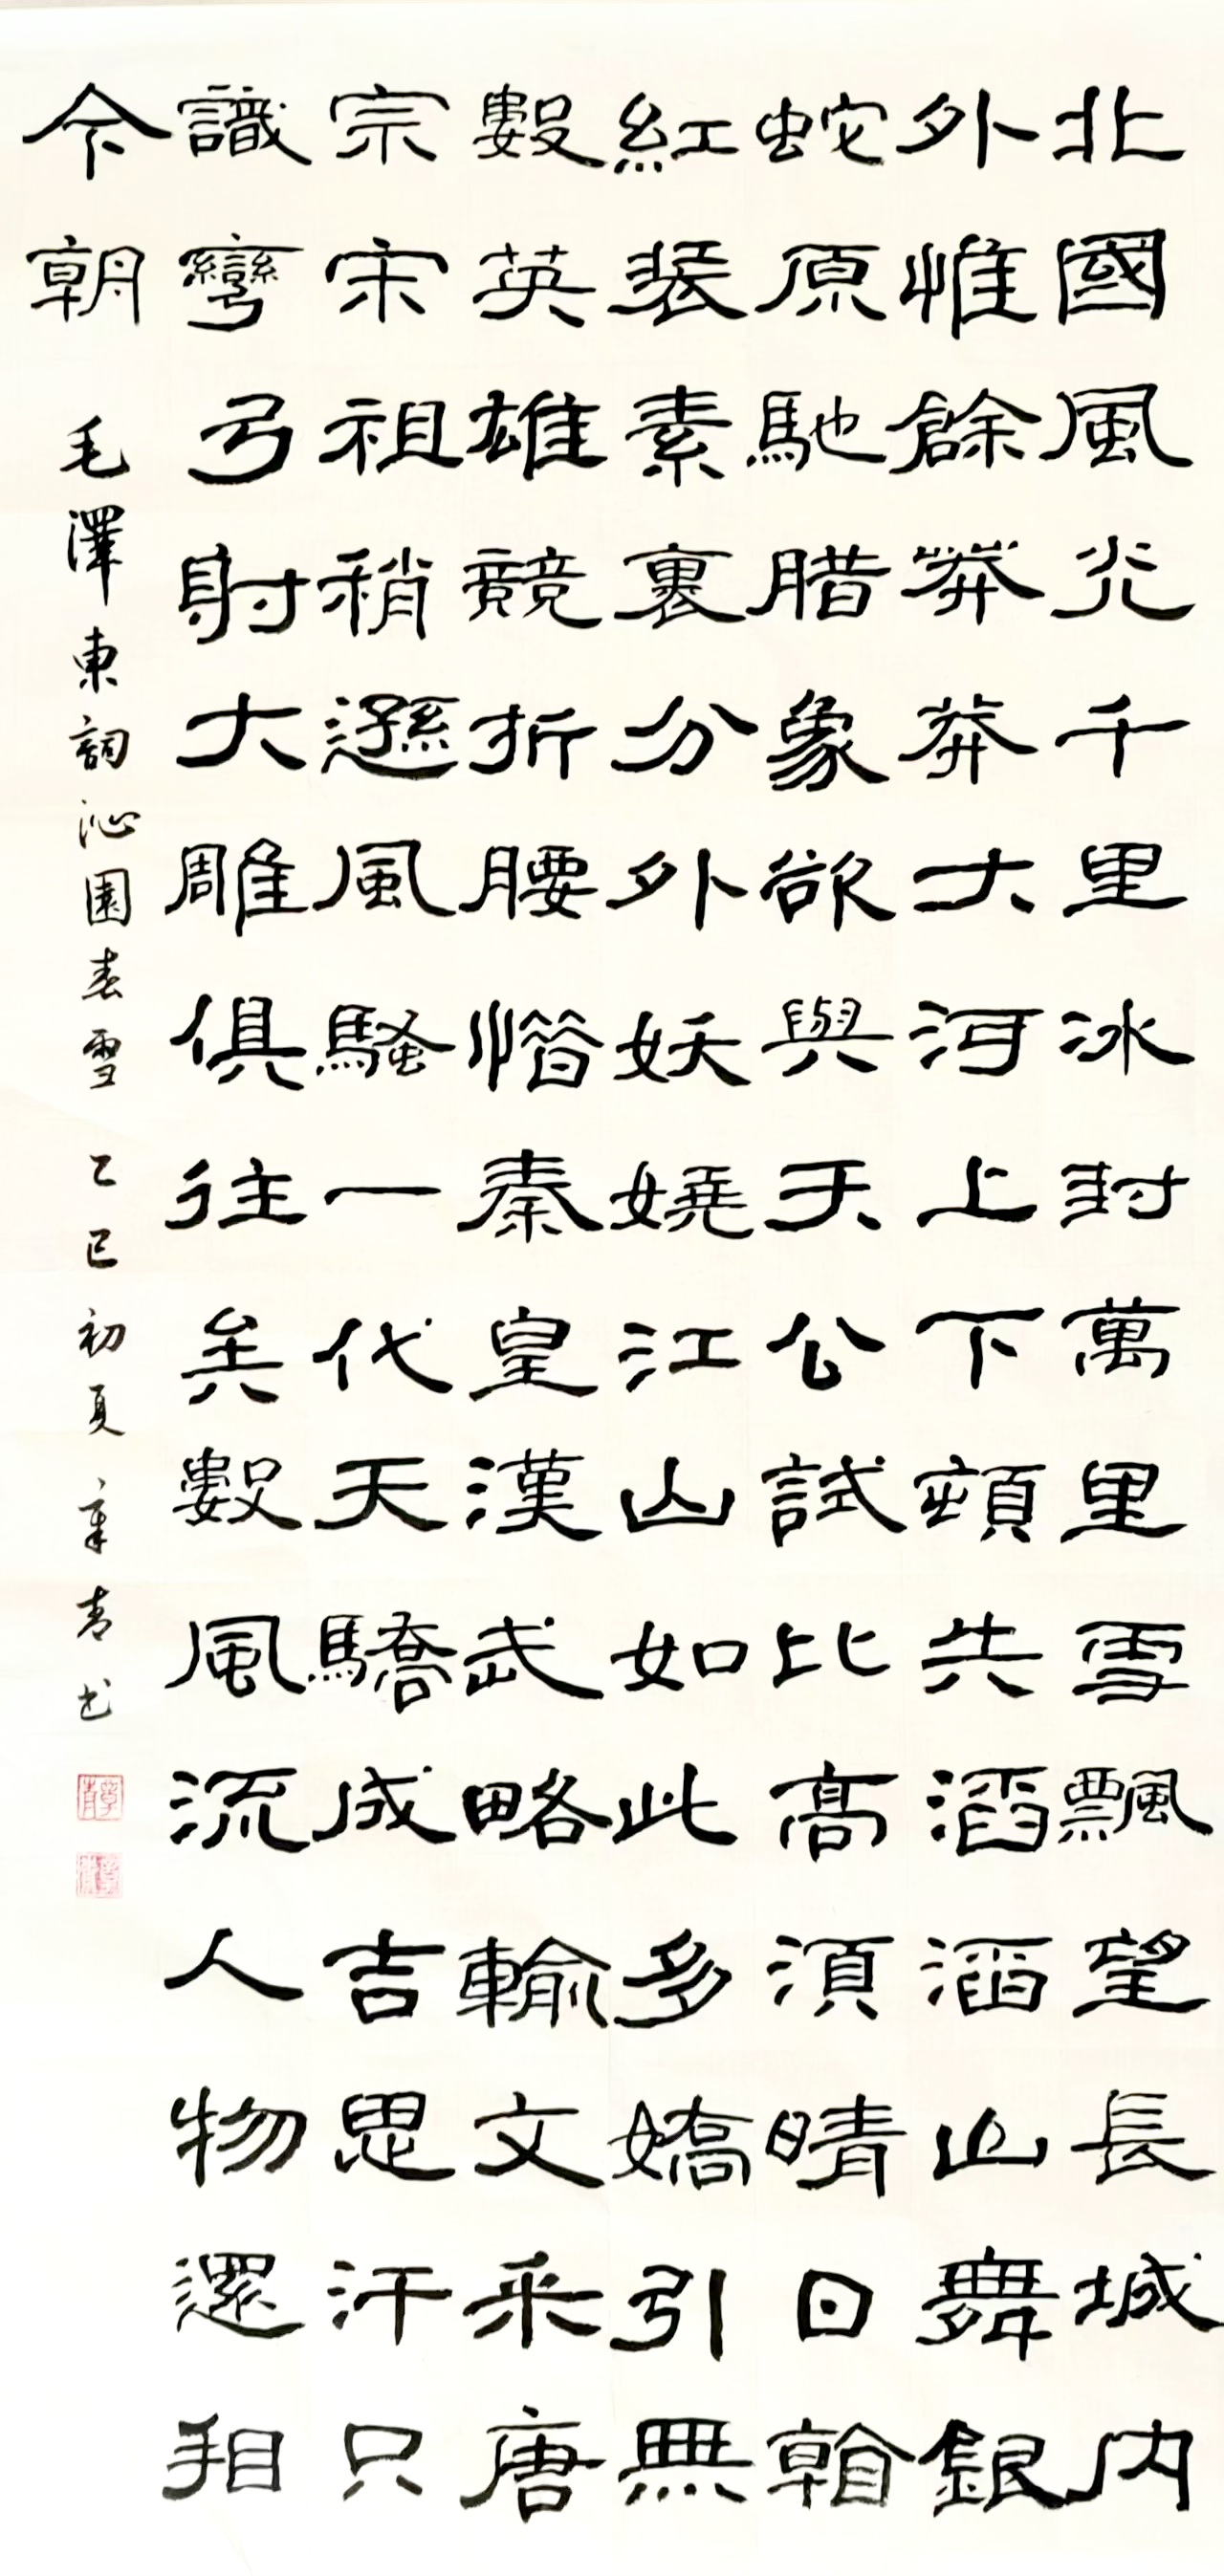 北國風光千里冰封萬里雪飄望長城内
外惟餘莽莽大河上下頓失滔滔山舞銀
蛇原馳腊象欲與天公試比高須晴日看
紅裝素裹分外妖嬈江山如此多嬌引無
數英雄競折腰惜秦皇漢武略輸文采唐
宗宋祖稍遜風騷一代天驕成吉思汗只
識彎弓射大雕俱往矣數風流人物還看
今朝 毛澤東詞沁園春雪 乙巳初夏 章青书